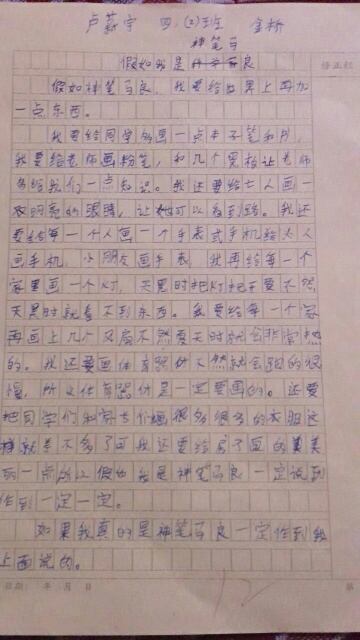 卢 宇 四.(2)班 金桥
神笔马
假如我是良
修正栏
假如神笔马良,我要给世界上再加
一点东西。
我要给同学多画一点本子笔和月,
我要给老师画粉笔,和几个黑板让老师
多给我们一点知识。我还要给亡人画一
双明亮的眼睛,让她可以看到路。我还
要给每一个人画一个手表式手机给大人
画手机,小朋友画手表,我再给每一个
家里画一个灯,天黑时把灯打开要不然
天黑时就看不到东西。我要给每一个家
再画上几个风扇不然夏天时就会非常热
的。我还要画体育器材不然就会跑的很
慢,所以体育器材是一定要画的。还要
把同学们和家长们画很多很多的衣服这
样就差不多了可我还要给房子画的美美
丽一点所以假如我是神笔马良一定说到
作到一定一定。
如果我真的是神笔马良一定作到我
上面说的。
日期: 年 月 日
第